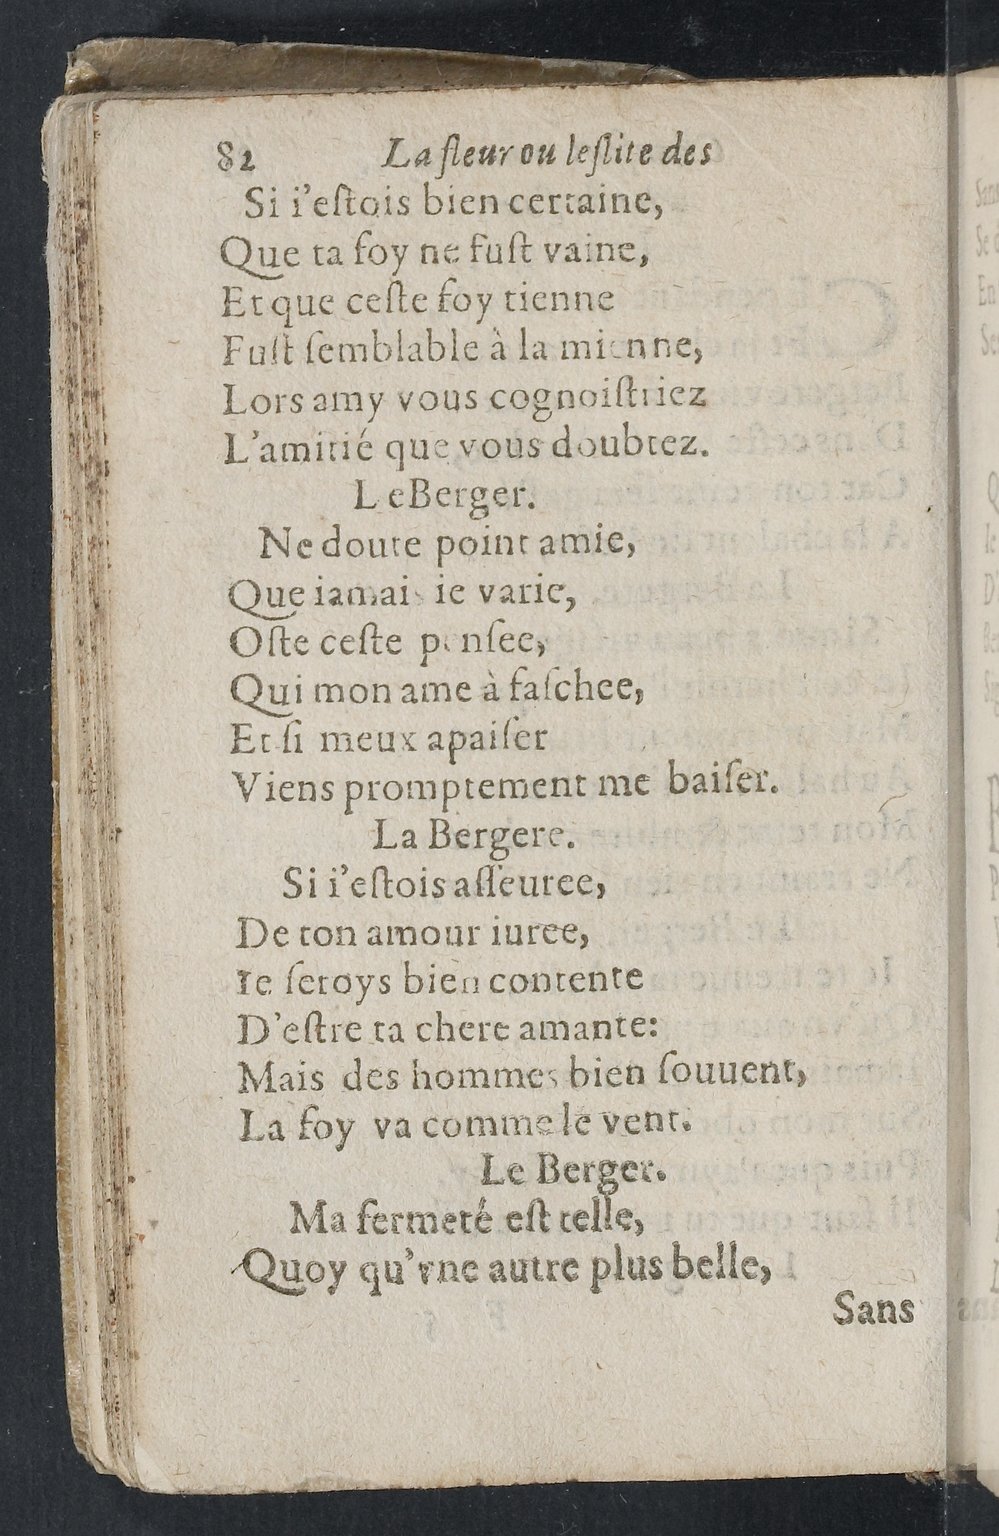 82 La fleur ou leſlite des
Si i'eſtois bien certaine,
Que ta foy ne fuſt vaine,
Et que ceſte foy tienne
Fuſt ſemblable à la mienne,
Lors amy vous cognoiſtriez
L'amitié que vous doubtez.
Le Berger.
Ne doute point amie,
Que iamais ie varie,
Oſte ceſte penſee,
Qui mon ame à faſchee,
Et ſi meux apaiſer
Viens promptement me baiſer.
La Bergere.
Si i'eſtois aſſeuree,
De ton amour iuree,
Ie ſeroys bien contente
D'eſtre ta chere amante:
Mais des hommes bien ſouuent,
La foy va comme le vent.
Le Berger.
Ma fermeté eſt telle,
Quoy qu'vne autre plus belle,
Sans